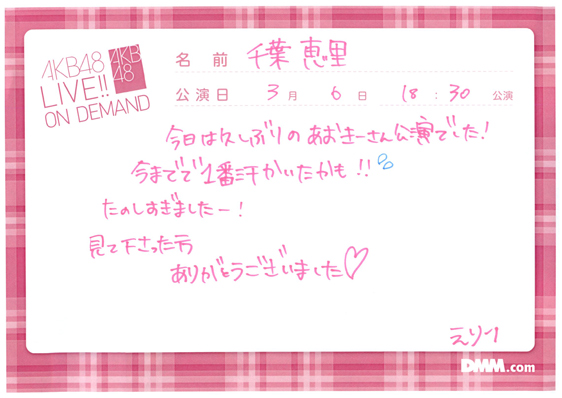 AKB48
LIVE!!
ON DEMAND
AKB
48
名前 千葉恵里
公演日 3月 6日 18:30 公演
今日は久しぶりのあおきーさん公演でした!
今までで1番汗かいたかも!!
たのしすぎましたー!
見て下さった方
ありがとうございました♡
えりい
DMM.com